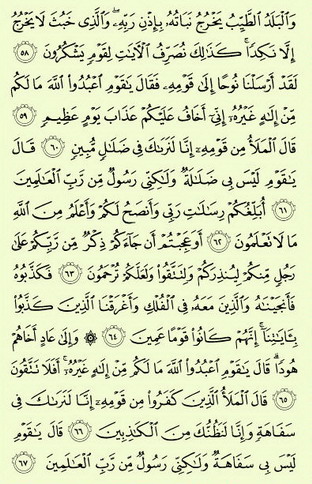 وَٱلْبَلَدُ ٱلطَّيِّبُ يَخْرُجُ نَبَاتُهُۥ بِإِذْنِ رَبِّهِۦ ۖ وَٱلَّذِى خَبُثَ لَا يَخْرُجُ
إِلَّا نَكِدًا ۚ كَذَٰلِكَ نُصَرِّفُ ٱلْـَٔايَٰتِ لِقَوْمٍ يَشْكُرُونَ ٥٨
لَقَدْ أَرْسَلْنَا نُوحًا إِلَىٰ قَوْمِهِۦ فَقَالَ يَٰقَوْمِ ٱعْبُدُوا۟ ٱللَّهَ مَا لَكُم
مِّنْ إِلَٰهٍ غَيْرُهُۥٓ إِنِّىٓ أَخَافُ عَلَيْكُمْ عَذَابَ يَوْمٍ عَظِيمٍ ٥٩
قَالَ ٱلْمَلَأُ مِن قَوْمِهِۦٓ إِنَّا لَنَرَىٰكَ فِى ضَلَٰلٍ مُّبِينٍ ٦٠ قَالَ
يَٰقَوْمِ لَيْسَ بِى ضَلَٰلَةٌ وَلَٰكِنِّى رَسُولٌ مِّن رَّبِّ ٱلْعَٰلَمِينَ
٦١ أُبَلِّغُكُمْ رِسَٰلَٰتِ رَبِّى وَأَنصَحُ لَكُمْ وَأَعْلَمُ مِنَ ٱللَّهِ
مَا لَا تَعْلَمُونَ ٦٢ أَوَعَجِبْتُمْ أَن جَآءَكُمْ ذِكْرٌ مِّن رَّبِّكُمْ عَلَىٰ
رَجُلٍ مِّنكُمْ لِيُنذِرَكُمْ وَلِتَتَّقُوا۟ وَلَعَلَّكُمْ تُرْحَمُونَ ٦٣ فَكَذَّبُوهُ
فَأَنجَيْنَٰهُ وَٱلَّذِينَ مَعَهُۥ فِى ٱلْفُلْكِ وَأَغْرَقْنَا ٱلَّذِينَ كَذَّبُوا۟
بِـَٔايَٰتِنَآ ۚ إِنَّهُمْ كَانُوا۟ قَوْمًا عَمِينَ ٦٤ ۞ وَإِلَىٰ عَادٍ أَخَاهُمْ
هُودًا ۗ قَالَ يَٰقَوْمِ ٱعْبُدُوا۟ ٱللَّهَ مَا لَكُم مِّنْ إِلَٰهٍ غَيْرُهُۥٓ ۚ أَفَلَا تَتَّقُونَ
٦٥ قَالَ ٱلْمَلَأُ ٱلَّذِينَ كَفَرُوا۟ مِن قَوْمِهِۦٓ إِنَّا لَنَرَىٰكَ فِى
سَفَاهَةٍ وَإِنَّا لَنَظُنُّكَ مِنَ ٱلْكَٰذِبِينَ ٦٦ قَالَ يَٰقَوْمِ
لَيْسَ بِى سَفَاهَةٌ وَلَٰكِنِّى رَسُولٌ مِّن رَّبِّ ٱلْعَٰلَمِينَ ٦٧